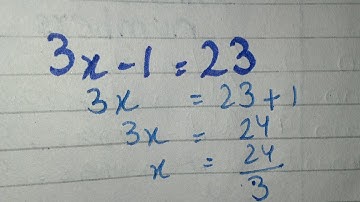 3x - 1 = 23
3x = 23 + 1
3x = 24
x = 24/3